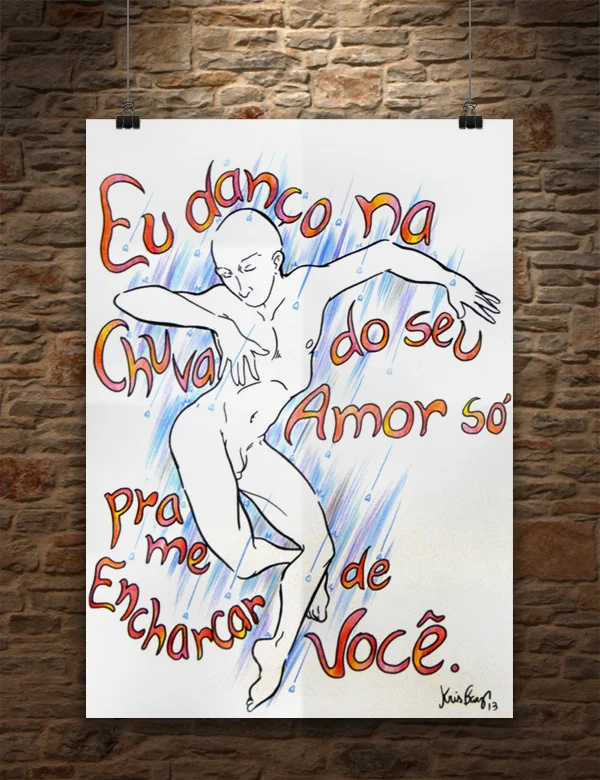 Eu danço na
Chuva do seu
Amor só
pra
me
Encharcar de
Você.
13